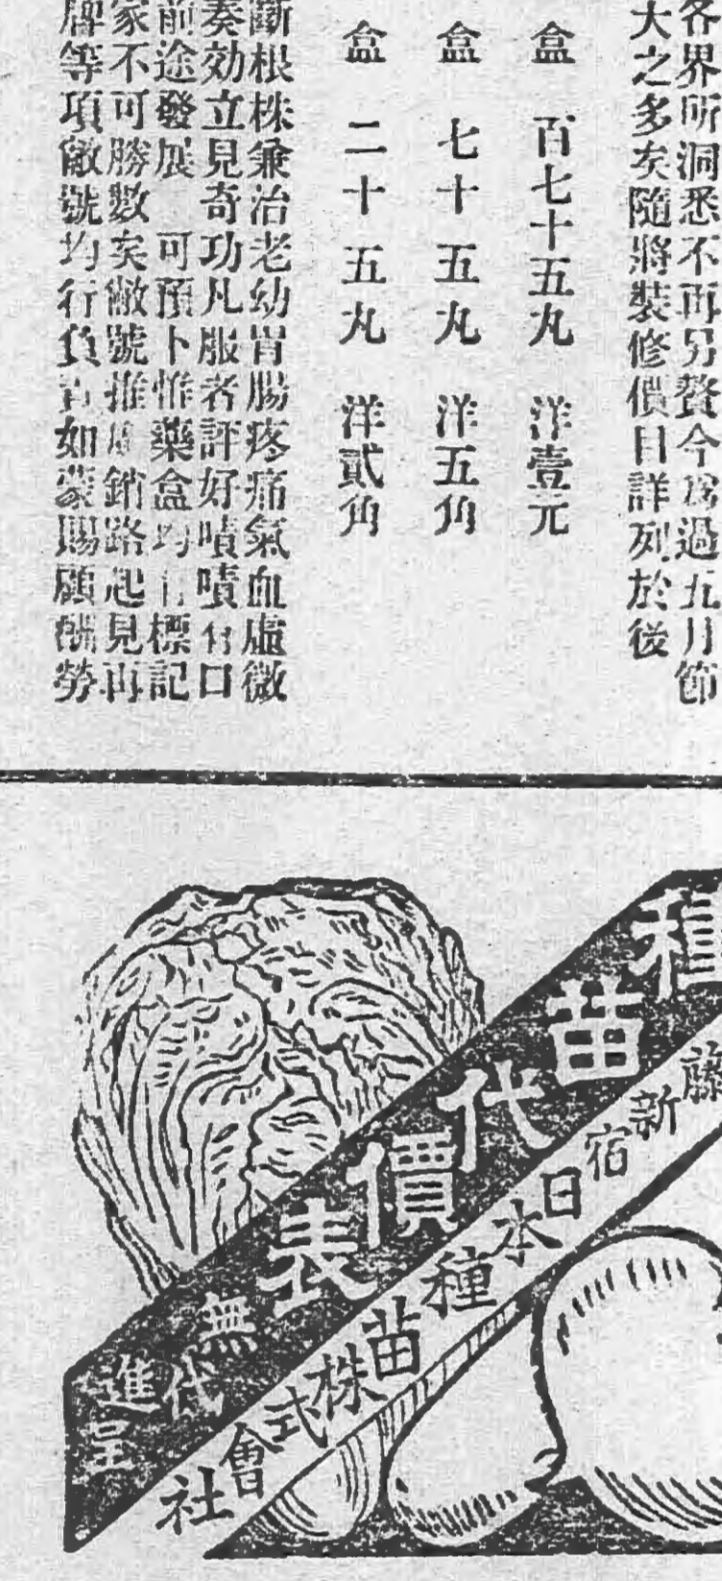 各界所洞悉不再另贅今為過五月節
大之多矣隨將裝修價目詳列於後
盒 百七十五丸 洋壹元
盒 七十五丸 洋五角
盒 二十五丸 洋貳角
斷根株兼治老幼胃腸疼痛氣血虛微
奏効立見奇功凡服者評好嘖嘖有口
前途發展 可預卜惟藥盒均有標記
家不可勝數矣敝號推廣銷路起見再
牌等項敝號均行負責如蒙賜顧酬勞
種苗代價表
無代進呈
藤新宿
日本種苗株式會社